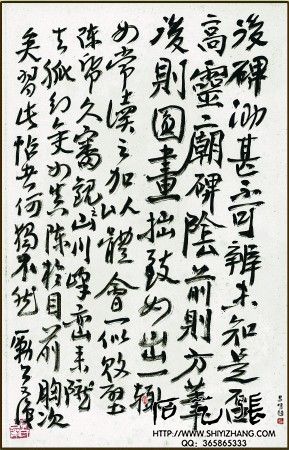 後碑泐甚不可辨未知是
高靈廟碑陰前則方筆
後則圓畫拙致如出一轍
如常讀之加以體會一似敗壁
陳帛久審觀之山川峰巒來龍
去脈幻變如真陳於目前胸次
矣習此帖者何獨不然
WWW.SHIYIZHANG.COM
QQ: 365865333